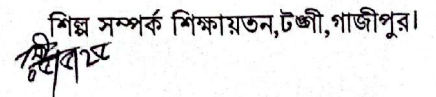 শিল্প সম্পর্ক শিক্ষায়তন,টঙ্গী,গাজীপুর।